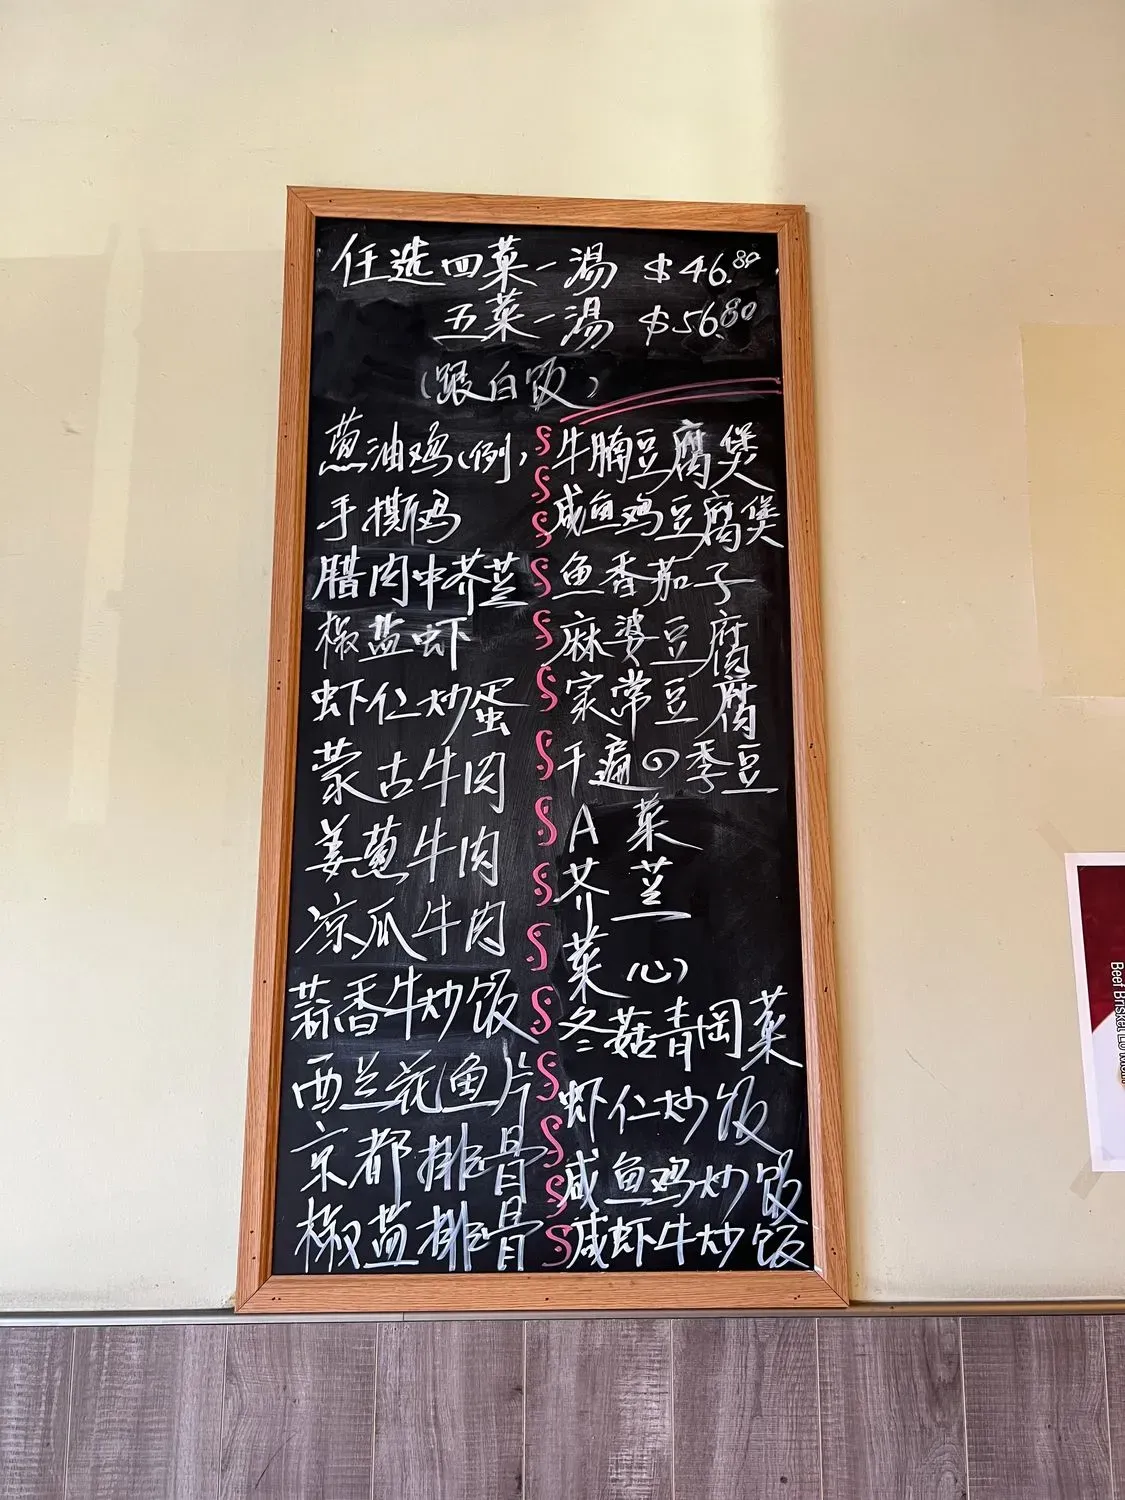 任选四菜一湯 $46.80
五菜一湯 $56.80
(跟白饭)
葱油鸡(例)
手撕鸡
腊肉中芥兰
椒盐虾
虾仁炒蛋
蒙古牛肉
姜葱牛肉
凉瓜牛肉
蒜香牛炒饭
西兰花鱼片
京都排骨
椒盐排骨
牛腩豆腐煲
咸鱼鸡豆腐煲
鱼香茄子
麻婆豆腐
家常豆腐
干煸四季豆
A菜
芥兰
菜心
冬菇青岡菜
虾仁炒饭
咸鱼鸡炒饭
咸虾牛炒饭
Beef Brisket Lo Mein